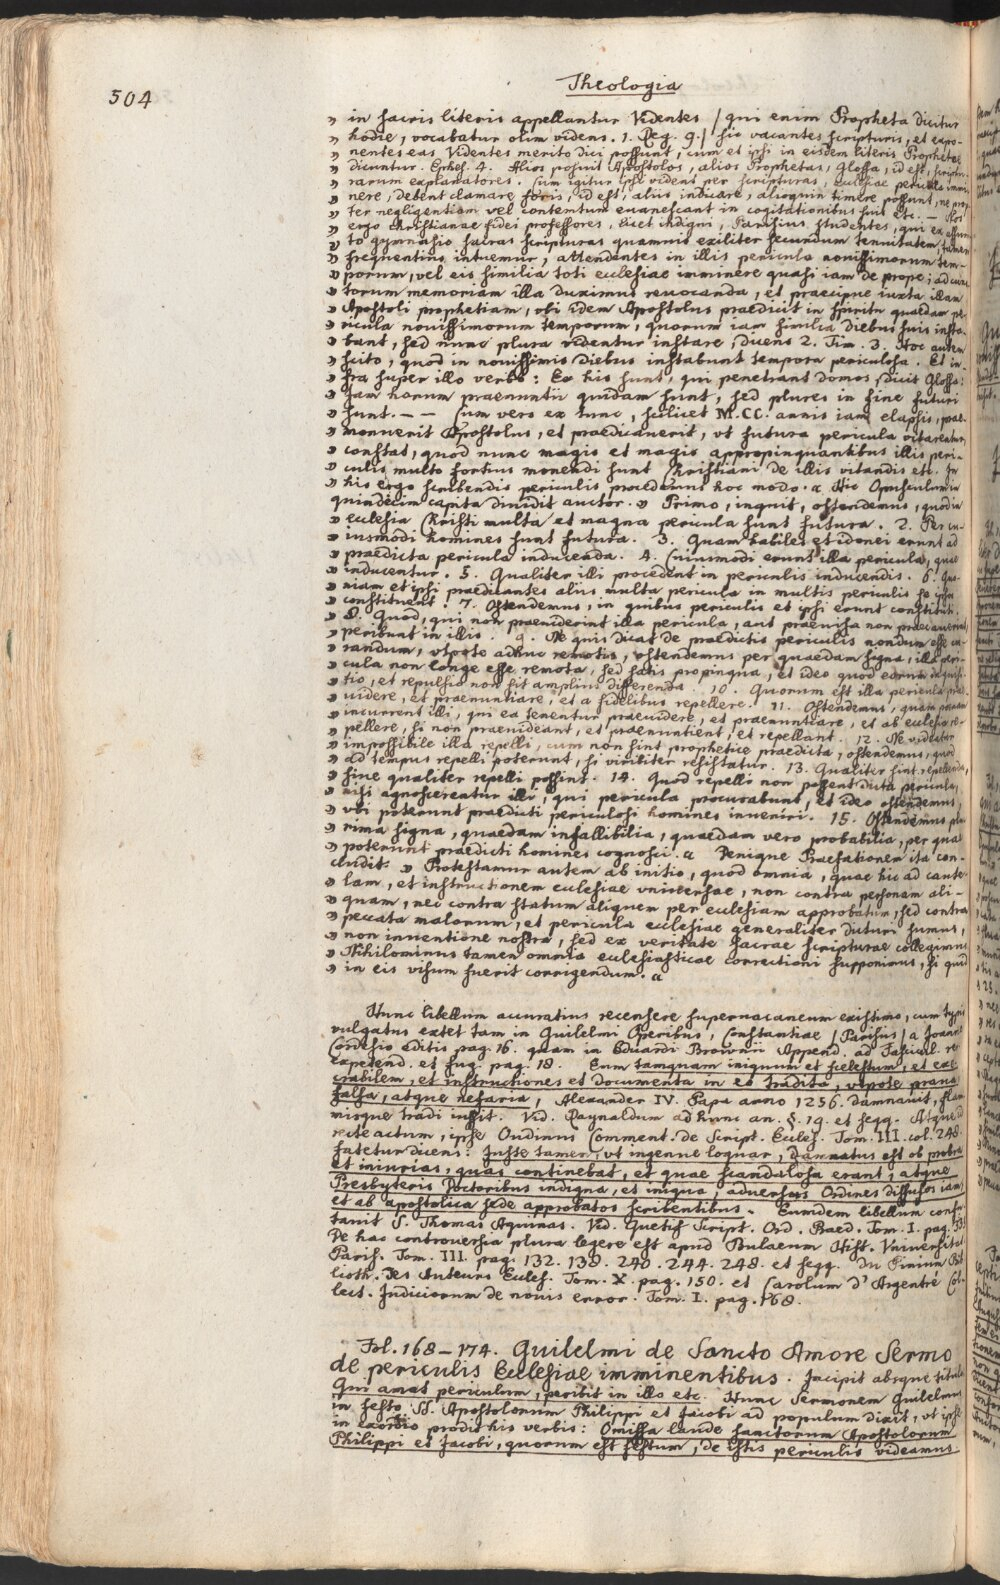 504
Theologia
„ in sacris literis appellantur Videntes / qui enim Propheta dicitur
„ hodie, vocabatur olim videns. 1. Reg. 9./ sic vacantes scripturis, et expo-
„ nentes eas Videntes merito dici possunt, cum et ipsi in eisdem literis Prophetae
„ dicuntur. Ephes. 4. Alios posuit Apostolos, alios Prophetas, Glossa, id est, scriptu-
„ rarum explanatores. Cum igitur ipsi vident per scripturas, ecclesiae pericula immi-
„ nere, debent clamare foris, id est, aliis indicare, alioquin timere possunt, ne prop-
„ ter negligentiam vel contemtum evanescant in cogitationibus suis etc. — Nos
„ ergo Christianae fidei professores, licet indigni, Parisius studentes, qui ex
„ to gymnasio sacras scripturas quamuis exiliter secundum tenuitatem tamen
„ frequentius intuemur, attendentes in illis pericula nouissimorum tem-
„ porum, vel eis similia toti ecclesiae imminere quasi iam de prope; ad cunc-
„ torum memoriam illa duximus reuocanda, et praecipue iuxta illam
„ Apostoli prophetiam, vbi idem Apostolus praedicit in spiritu quaedam pe-
„ ricula nouissimorum temporum, quorum iam similia diebus suis insta-
„ bant, sed nunc plura videntur instare, dicens 2. Tim. 3. Hoc autem
„ scito, quod in nouissimis diebus instabunt tempora periculosa. Et in-
„ fra super illo verbo: Ex his sunt, qui penetrant domos, dicit Glossa:
„ Iam horum praenuntii quidam sunt, sed plures in fine futuri
„ sunt. — — Cum vero ex tunc, scilicet M.CC. annis iam elapsis, prae-
„ monuerit Apostolus, et praedicauerit, vt futura pericula vitarentur,
„ constat, quod nunc magis et magis appropinquantibus illis peri-
„ culis multo fortius monendi sunt Christiani de illis vitandis etc. In
„ his ergo scribendis periculis procedemus hoc modo. „ Hic Opusculum in
quindecim capita diuidit auctor. „ Primo, inquit, ostendemus, quod in
„ ecclesia Christi multa et magna pericula sunt futura. 2. Per cu-
„ iusmodi homines sunt futura. 3. Quam habiles et idonei erunt ad
„ praedicta pericula inducenda. 4. Cuiusmodi erunt illa pericula, quae
„ inducentur. 5. Qualiter illi procedent in periculis inducendis. 6. Quo-
„ niam et ipsi praedicantes aliis multa pericula in multis periculis se ipsos
„ constituent. 7. Ostendemus, in quibus periculis et ipsi erunt constituti.
„ 8. Quod, qui non praeuiderint illa pericula, aut praeuisa non praecauerint,
„ peribunt in illis. 9. Ne quis dicat de praedictis periculis nondum esse cu-
„ randum, vtpote adhuc remotis, ostendemus per quaedam signa, illa peri-
„ cula non longe esse remota, sed satis propinqua, et ideo quod eorum inquisi-
„ tio, et repulsio non sit amplius differenda. 10. Quorum est illa pericula prae-
„ uidere, et praenuntiare, et a fidelibus repellere. 11. Ostendemus, quam poenam
„ incurrent illi, qui ea tenentur praeuidere, et praenuntiare, et ab ecclesia re-
„ pellere, si non praeuideant, et praenuntient, et repellant. 12. Ne videatur
„ impossibile illa repelli, cum non sint prophetice praedicta, ostendemus, quod
„ ad tempus repelli poterunt, si viriliter resistatur. 13. Qualiter sint repellenda,
„ siue qualiter repelli possint. 14. Quod repelli non possent dicta pericula,
„ nisi agnoscerentur illi, qui pericula procurabunt, et ideo ostendemus,
„ vbi poterunt praedicti periculosi homines inueniri. 15. Ostendemus plu-
„ rima signa, quaedam infallibilia, quaedam vero probabilia, per quae
„ poterunt praedicti homines cognosci. „ Denique Praefationem ita con-
cludit: „ Protestamur autem ab initio, quod omnia, quae hic ad caute-
„ lam, et instructionem ecclesiae vniuersae, non contra personam ali-
„ quam, nec contra statum aliquem per ecclesiam approbatum, sed contra
„ peccata malorum, et pericula ecclesiae generaliter dicturi sumus,
„ non inuentione nostra, sed ex veritate sacrae scripturae collegimus.
„ Nihilominus tamen omnia ecclesiasticae correctioni supponimus, si quid
„ in eis visum fuerit corrigendum. „
Hunc libellum accuratius recensere superuacaneum existimo, cum typis
vulgatus extet tam in Guilelmi Operibus, Constantiae /Parisiis/ a Joanne
Cordesio editis pag. 16. quam in Eduardi Brownii Append. ad Fascicul. rer.
expetend. et fug. pag. 18. Eum tamquam iniquum et scelestum, et exe-
crabilem, et instructiones et documenta in eo tradita, vtpote praua,
falsa, atque nefaria, Alexander IV. Papa anno 1256. damnauit, flam-
misque tradi iussit. Vid. Raynaldum ad hunc an. §. 19. et seqq. Atque id
recte actum, ipse Oudinus Comment. de Script. Eccles. Tom. III. col. 248.
fatetur dicens: Iuste tamen, vt ingenue loquar, damnatus est ob probra
et iniurias, quas continebat, et quae scandalosa erant, atque
Presbyteris Doctoribus indigna, et iniqua, aduersus Ordines diffusos iam,
et ab apostolica sede approbatos scribentibus. Eumdem libellum confu-
tauit S. Thomas Aquinas. Vid. Quetif Script. Ord. Praed. Tom. I. pag.
De hac controuersia plura legere est apud Bulaeum Hist. Vniuersitat.
Paris. Tom. III. pag. 132. 138. 240. 244. 248. et seqq. Du Pinium Bib-
lioth. des Auteurs Eccles. Tom. X. pag. 150. et Carolum d'Argentré Col-
lect. Judiciorum de nouis error. Tom. I. pag. 168.
Fol. 168–174. Guilelmi de Sancto Amore Sermo
de periculis Ecclesiae imminentibus. Incipit absque titulo
Qui amat periculum, peribit in illo etc. Hunc Sermonem Guilelmus
in festo SS. Apostolorum Philippi et Jacobi ad populum dixit, vt ipse
in exordio prodit his verbis: Omissa laude sanctorum Apostolorum
Philippi et Jacobi, quorum est festum, de istis periculis videamus.